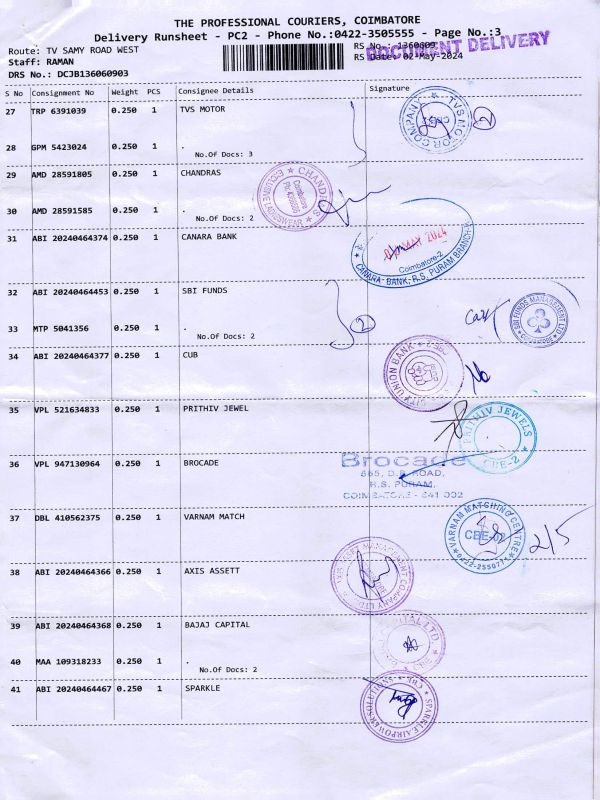 THE PROFESSIONAL COURIERS, COIMBATORE
Delivery Runsheet - PC2 - Phone No.:0422-3505555 - Page No.:3
DOCUMENT DELIVERY
Route: TV SAMY ROAD WEST
RS No.: 1360609
Staff: RAMAN
RS Date: 02-May-2024
DRS No.: DCJB136060903
S No Consignment No Weight PCS Consignee Details Signature
27 TRP 6391039 0.250 1 TVS MOTOR
TVS MOTOR COMPANY CBE-2
2
28 GPM 5423024 0.250 1 .
No.Of Docs: 3
29 AMD 28591805 0.250 1 CHANDRAS
CHANDRAS
Coimbatore
30 AMD 28591585 0.250 1 .
No.Of Docs: 2
31 ABI 20240464374 0.250 1 CANARA BANK
MAY 2024
Coimbatore-2
CANARA BANK, R.S. PURAM BRANCH
32 ABI 20240464453 0.250 1 SBI FUNDS
SBI FUNDS MANAGEMENT LTD
COIMBATORE
33 MTP 5041356 0.250 1 .
No.Of Docs: 2
2
34 ABI 20240464377 0.250 1 CUB
CITY UNION BANK
35 VPL 521634833 0.250 1 PRITHIV JEWEL
PRITHIV JEWELS
CBE-2
36 VPL 947130964 0.250 1 BROCADE
Brocade
565, D.B. ROAD,
R.S. PURAM,
COIMBATORE - 641 002
37 DBL 410562375 0.250 1 VARNAM MATCH
VARNAM MATCHING CENTRE
CBE-2
2/5
38 ABI 20240464366 0.250 1 AXIS ASSETT
39 ABI 20240464368 0.250 1 BAJAJ CAPITAL
CAPITAL LTD
40 MAA 109318233 0.250 1 .
No.Of Docs: 2
41 ABI 20240464467 0.250 1 SPARKLE
SPARKLE AIRPOWER SOLUTIONS